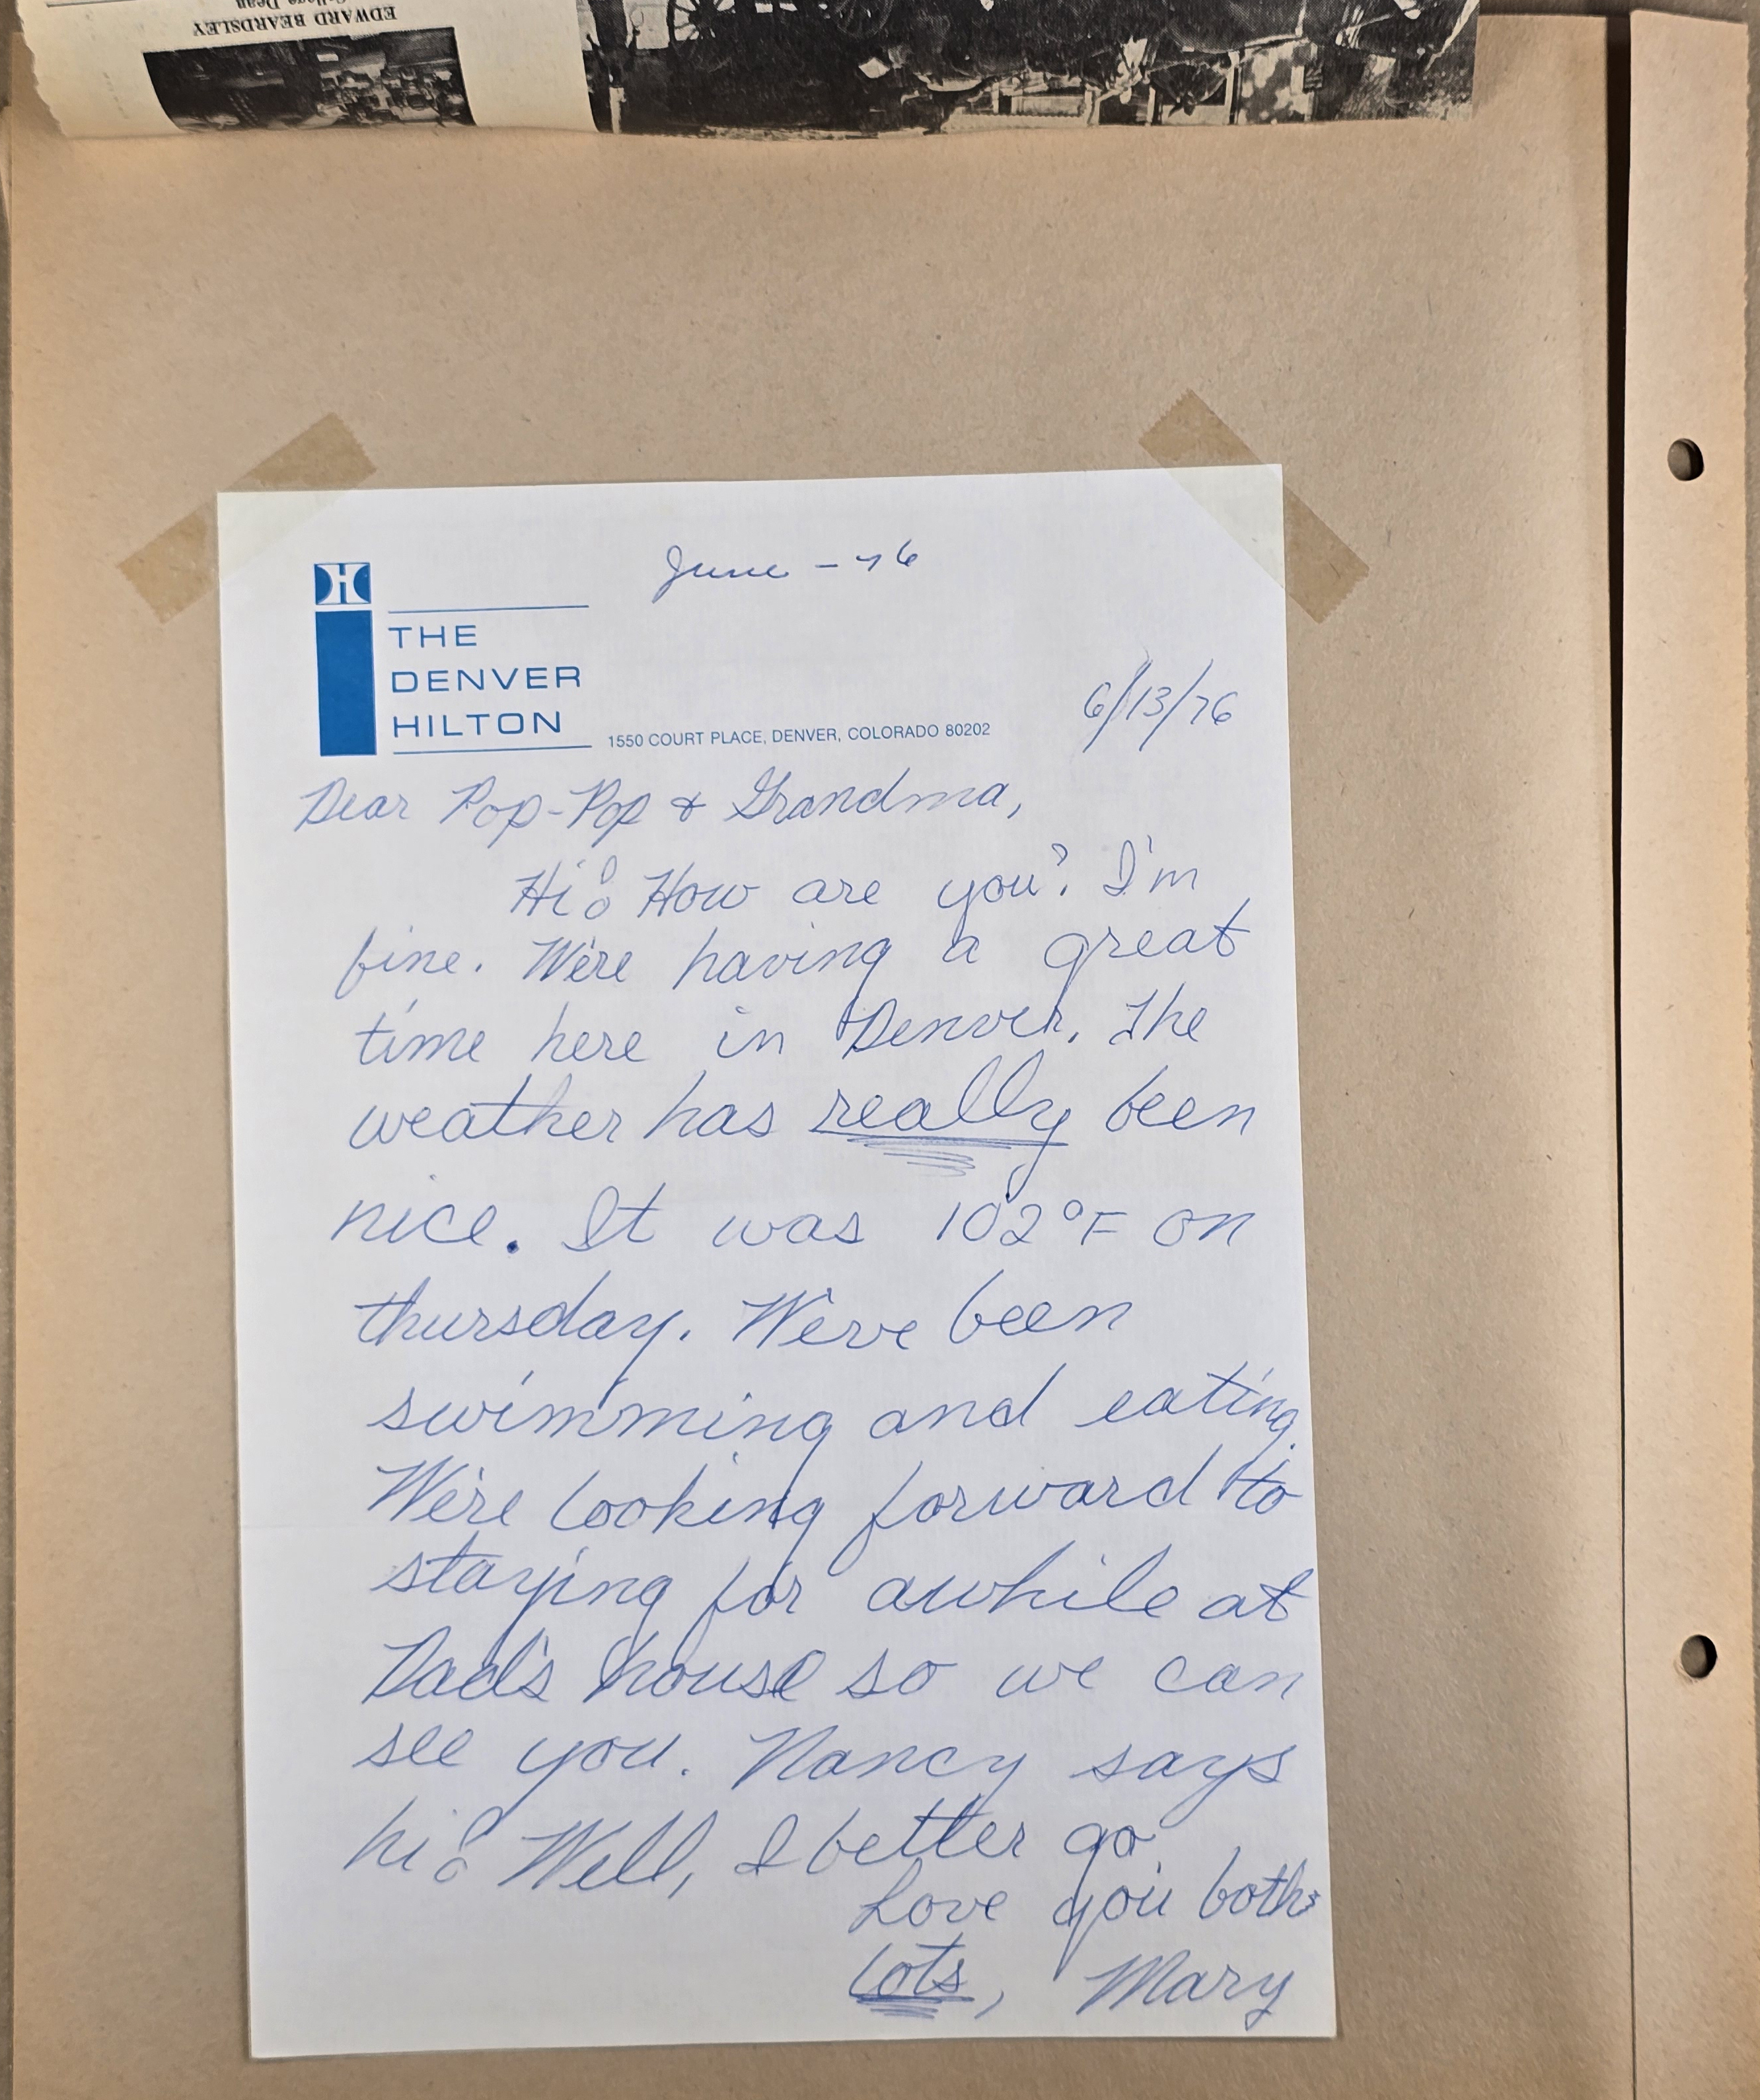 EDWARD BEARDSLEY
College Dean
June - 76
H
THE
DENVER
HILTON
1550 COURT PLACE, DENVER, COLORADO 80202
6/13/76
Dear Pop-Pop & Grandma,
Hi! How are you? I'm
fine. We're having a great
time here in Denver. The
weather has really been
nice. It was 102°F on
thursday. We've been
swimming and eating.
We're looking forward to
staying for awhile at
Dad's house so we can
see you. Nancy says
hi! Well, I better go
Love you both
lots, Mary